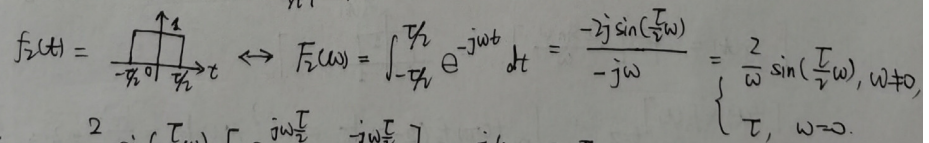 f₂(t) = 1 -τ/2 0 τ/2 t ↔ F₂(ω) = ∫_{-τ/2}^{τ/2} e^{-jωt} dt = \frac{-2j sin(\frac{τ}{2}ω)}{-jω} = { \frac{2}{ω} sin(\frac{τ}{2}ω), ω≠0,
τ, ω=0.
2 jω\frac{τ}{2} -jω\frac{τ}{2}